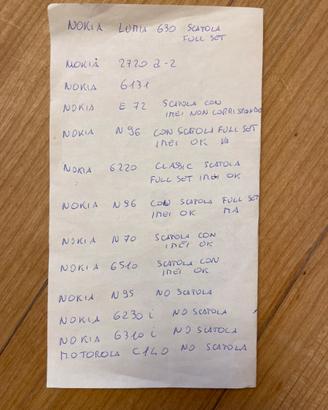 NOKIA LUMIA 630 SCATOLA
FULL SET
NOKIA 2720 a-2
NOKIA 6131
NOKIA E 72 SCATOLA CON
IMEI NON CORRISPONDE
NOKIA N96 CON SCATOLA FULL SET
IMEI OK
NOKIA 6220 CLASSIC SCATOLA
FULL SET IMEI OK
NOKIA N96 CON SCATOLA FULL SET
IMEI OK MA
NOKIA N70 SCATOLA CON
IMEI OK
NOKIA 6510 SCATOLA CON
IMEI OK
NOKIA N95 NO SCATOLA
NOKIA 6230 i NO SCATOLA
NOKIA 6310 i NO SCATOLA
MOTOROLA C140 NO SCATOLA